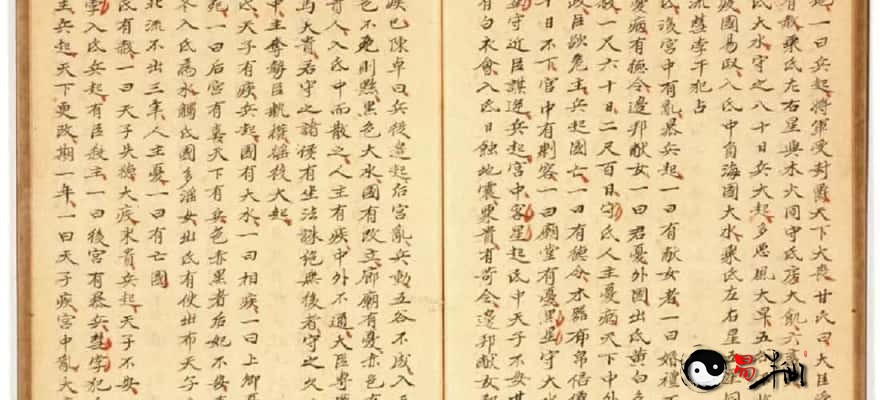 一曰兵起將軍受封爵天下大喪甘氏曰大臣
有赦乘氐左右星與水火同守氐居大飢六
氐大水守之八十日兵大起多惡風大旱五
疫國易政入氐中有海國大水乘氐左右星五同
流彗孛干犯占
氐後宮中有亂暴兵起一曰有獻女者一曰婚禮不
憂病有德令邊邦獻女一曰君憂外國出氐黃白色
散一尺六十日二尺百日守氐人主憂病天下中外
政臣欲免主兵起國亡一曰有德令水器布帛倍價
十日不下宮中有刺客一曰廟堂有憂黑星守大水
守近臣謀逆兵起宮中客星起氐中天子不安其
有白衣會入氐日蝕地震粟貴有苛令邊邦獻女
疾也陳卓曰兵後邊起后宮亂兵動五谷不成入
色不免則黜黑色大水國有改立廊廟有憂赤色有
貴人入氐中而散之人主有疾中外不通大臣專
馬大貴君守之諸侯有坐法誅絕無後者守之久
中主奪勢臣執權徭役大起
氐天子有疾兵起國有大水一曰相疾一曰上卿
死一曰后宮有喜天下有兵色赤黑者后妃不安
入氐為水觸氐國多淫女出氐有使出布天子
北流不出三年人主憂一曰有亡國
氐有赦一曰天子失德大疫米貴兵起天子不安
孛入氐兵起有臣殺主一曰後宮有暴兵彗孛犯
主兵起天下更政期一年一曰天子疾宮中亂大
易